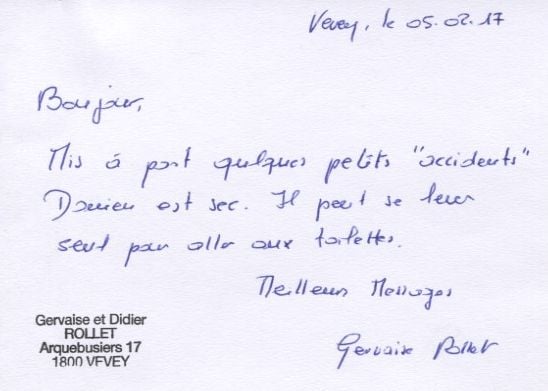 Vevey, le 05.02.17
Bonjour,
Mis à part quelques petits "accidents"
Damien est sec. Il peut se lever
seul pour aller aux toilettes.
Meilleurs Messages
Gervaise et Didier
ROLLET
Arquebusiers 17
1800 VEVEY
Gervaise Rollet